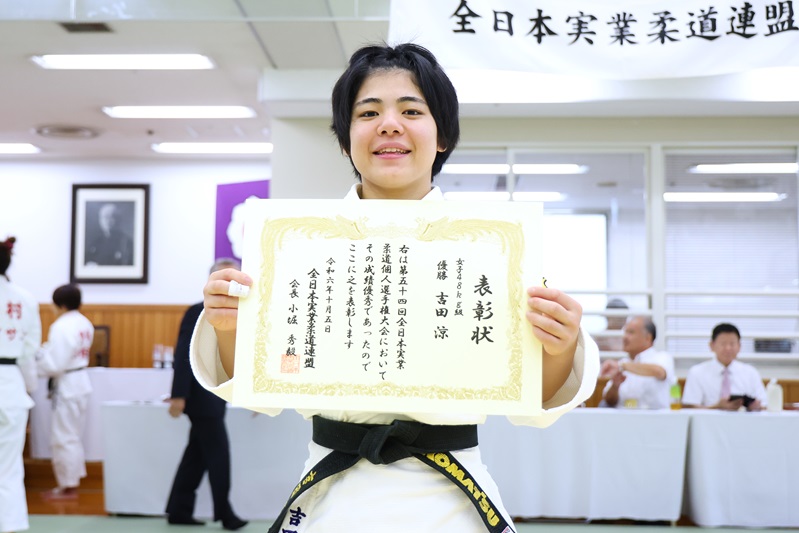 全日本実業柔道連盟
表彰状
女子48kg級
優勝 吉田 涼
右は第五十四回全日本実業
柔道個人選手権大会において
その成績優秀であったので
ここに之を表彰します
令和六年十月五日
全日本実業柔道連盟
会長 小堀 秀毅
KOMATSU
吉
村
サ